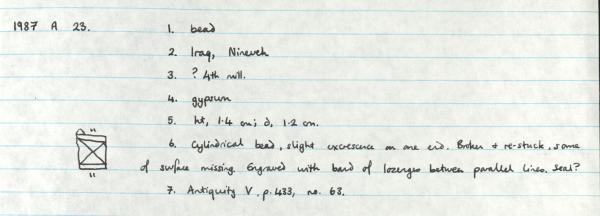 1987 A 23. 1. bead
2. Iraq, Nineveh
3. ? 4th mill.
4. gypsum
5. ht, 1.4 cm; d, 1.2 cm.
6. Cylindrical bead, slight excrescence on one end. Broken & re-stuck, some
of surface missing. Engraved with band of lozenges between parallel lines. Seal?
7. Antiquity V. p. 433, no. 63.